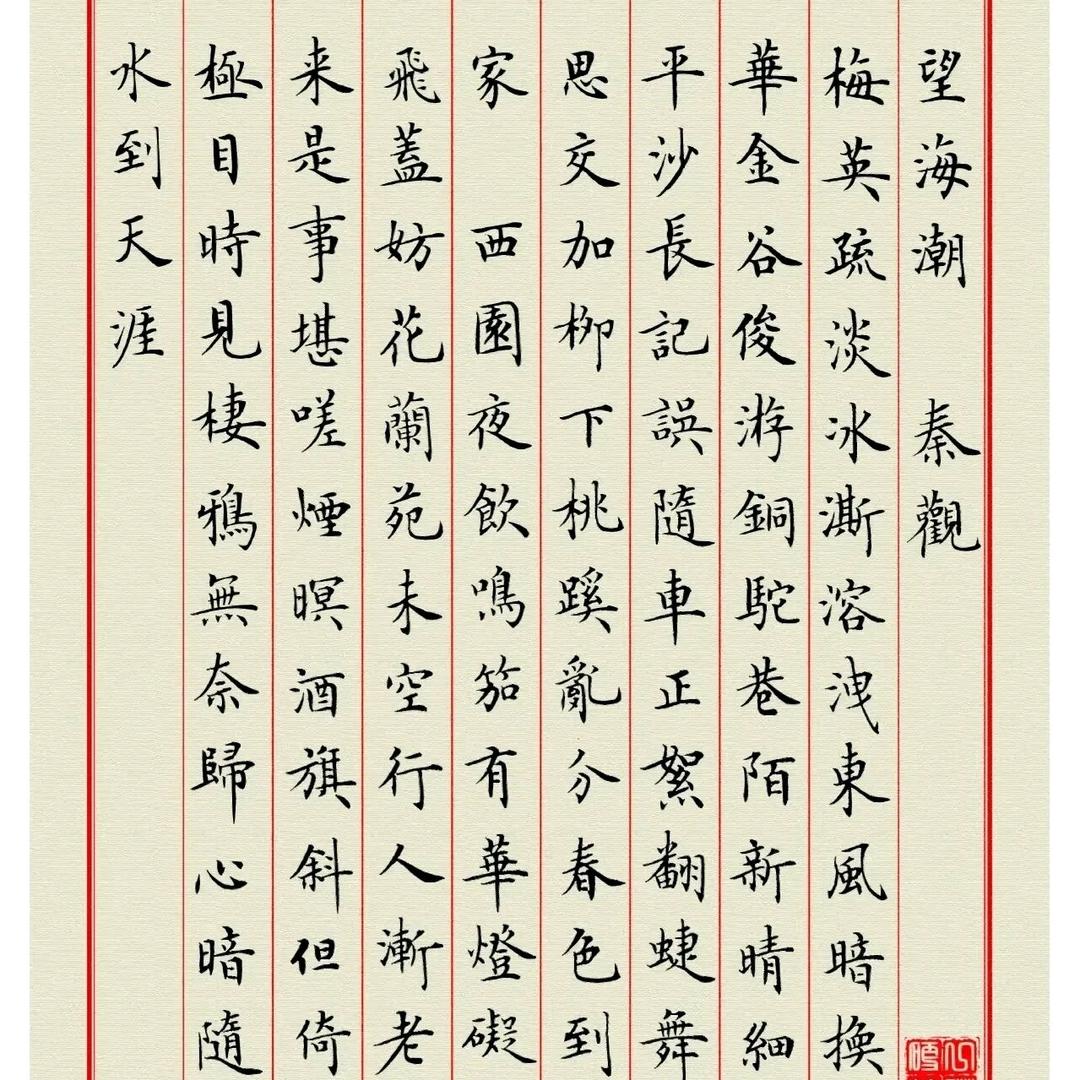 望海潮 秦觀
梅英疏淡冰澌溶洩東風暗換
華金谷俊游銅駝巷陌新晴細
平沙長記誤隨車正絮翻蜨舞
思交加柳下桃蹊亂分春色到
家 西園夜飲鳴笳有華燈礙
飛蓋妨花蘭苑未空行人漸老
来是事堪嗟煙暝酒旗斜但倚
極目時見棲鴉無奈歸心暗隨
水到天涯